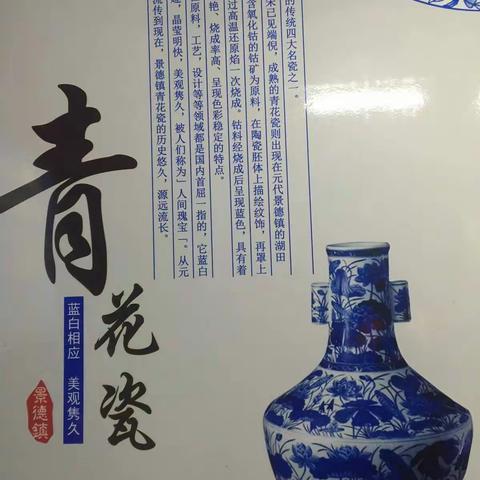 的传统四大名瓷之一。
宋已见端倪，成熟的青花瓷则出现在元代景德镇的湖田
含氧化钴的钴矿为原料，在陶瓷胚体上描绘纹饰，再罩上
过高温还原焰一次烧成。钴料经烧成后呈现蓝色，具有着
艳、烧成率高、呈现色彩稳定的特点。
原料，工艺，设计等等领域都是国内首屈一指的，它蓝白
，晶莹明快，美观隽久，被人们称为」人间瑰宝「。从元
流传到现在，景德镇青花瓷的历史悠久，源远流长。
青花瓷
蓝白相应 美观隽久
景德镇